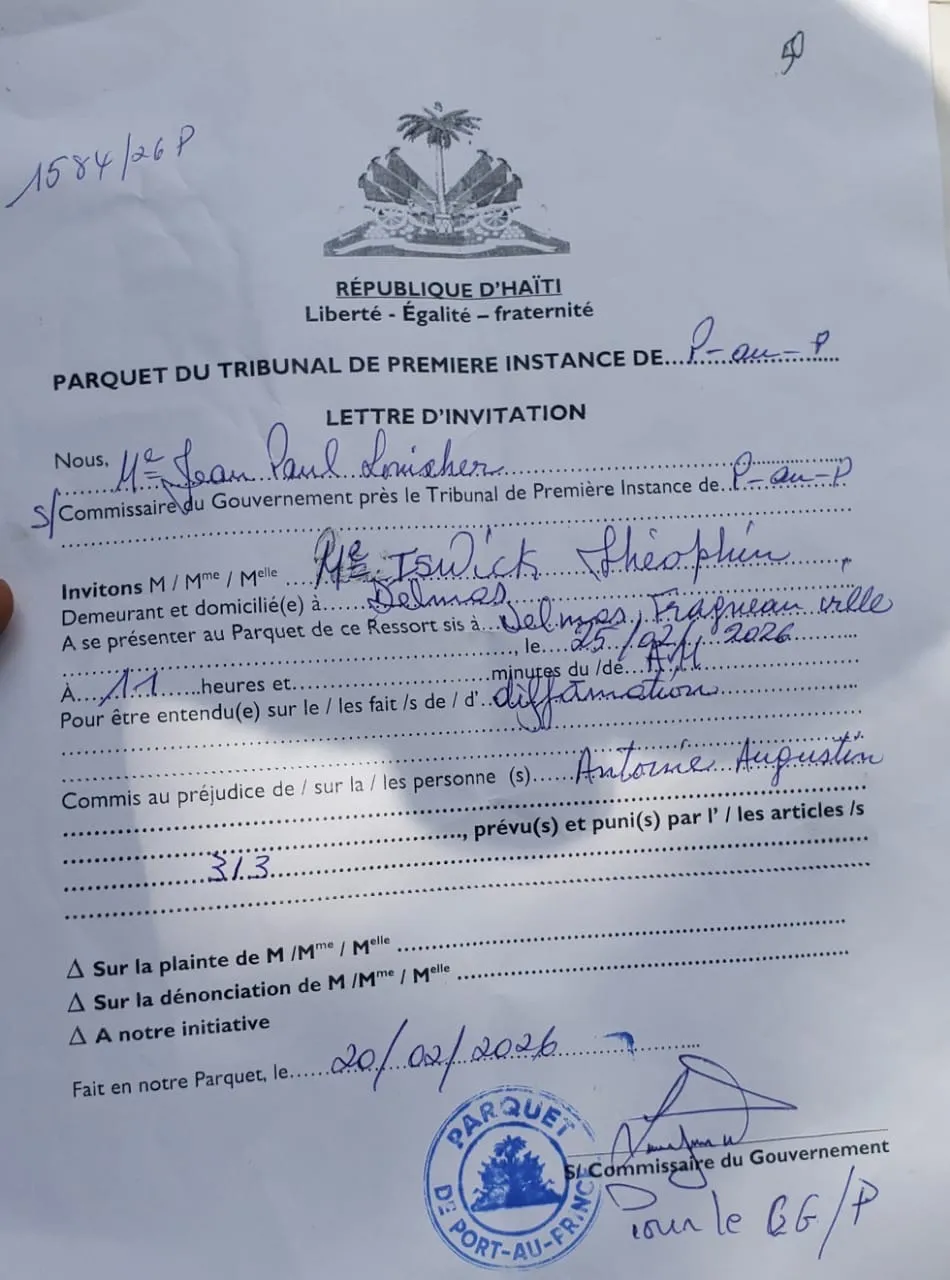 50
1584/26 P
RÉPUBLIQUE D'HAÏTI
Liberté - Égalité – fraternité
PARQUET DU TRIBUNAL DE PREMIERE INSTANCE DE...P-au-P
LETTRE D'INVITATION
Nous, Me Jean Paul Louicher
S/Commissaire du Gouvernement près le Tribunal de Première Instance de P-au-P
Invitons M / Mme / Melle Me Iswick Théophin
Demeurant et domicilié(e) à Delmas
A se présenter au Parquet de ce Ressort sis à Delmas, Fragneau ville
, le 25/02/2026
À 11 heures et minutes du /de AM
Pour être entendu(e) sur le / les fait /s de / d' diffamation
Commis au préjudice de / sur la / les personne (s) Antoine Augustin
, prévu(s) et puni(s) par l' / les articles /s
313
Δ Sur la plainte de M /Mme / Melle
Δ Sur la dénonciation de M /Mme / Melle
Δ A notre initiative
Fait en notre Parquet, le 20/02/2026
PARQUET DE PORT-AU-PRINCE
S/ Commissaire du Gouvernement
Pour le CG/P